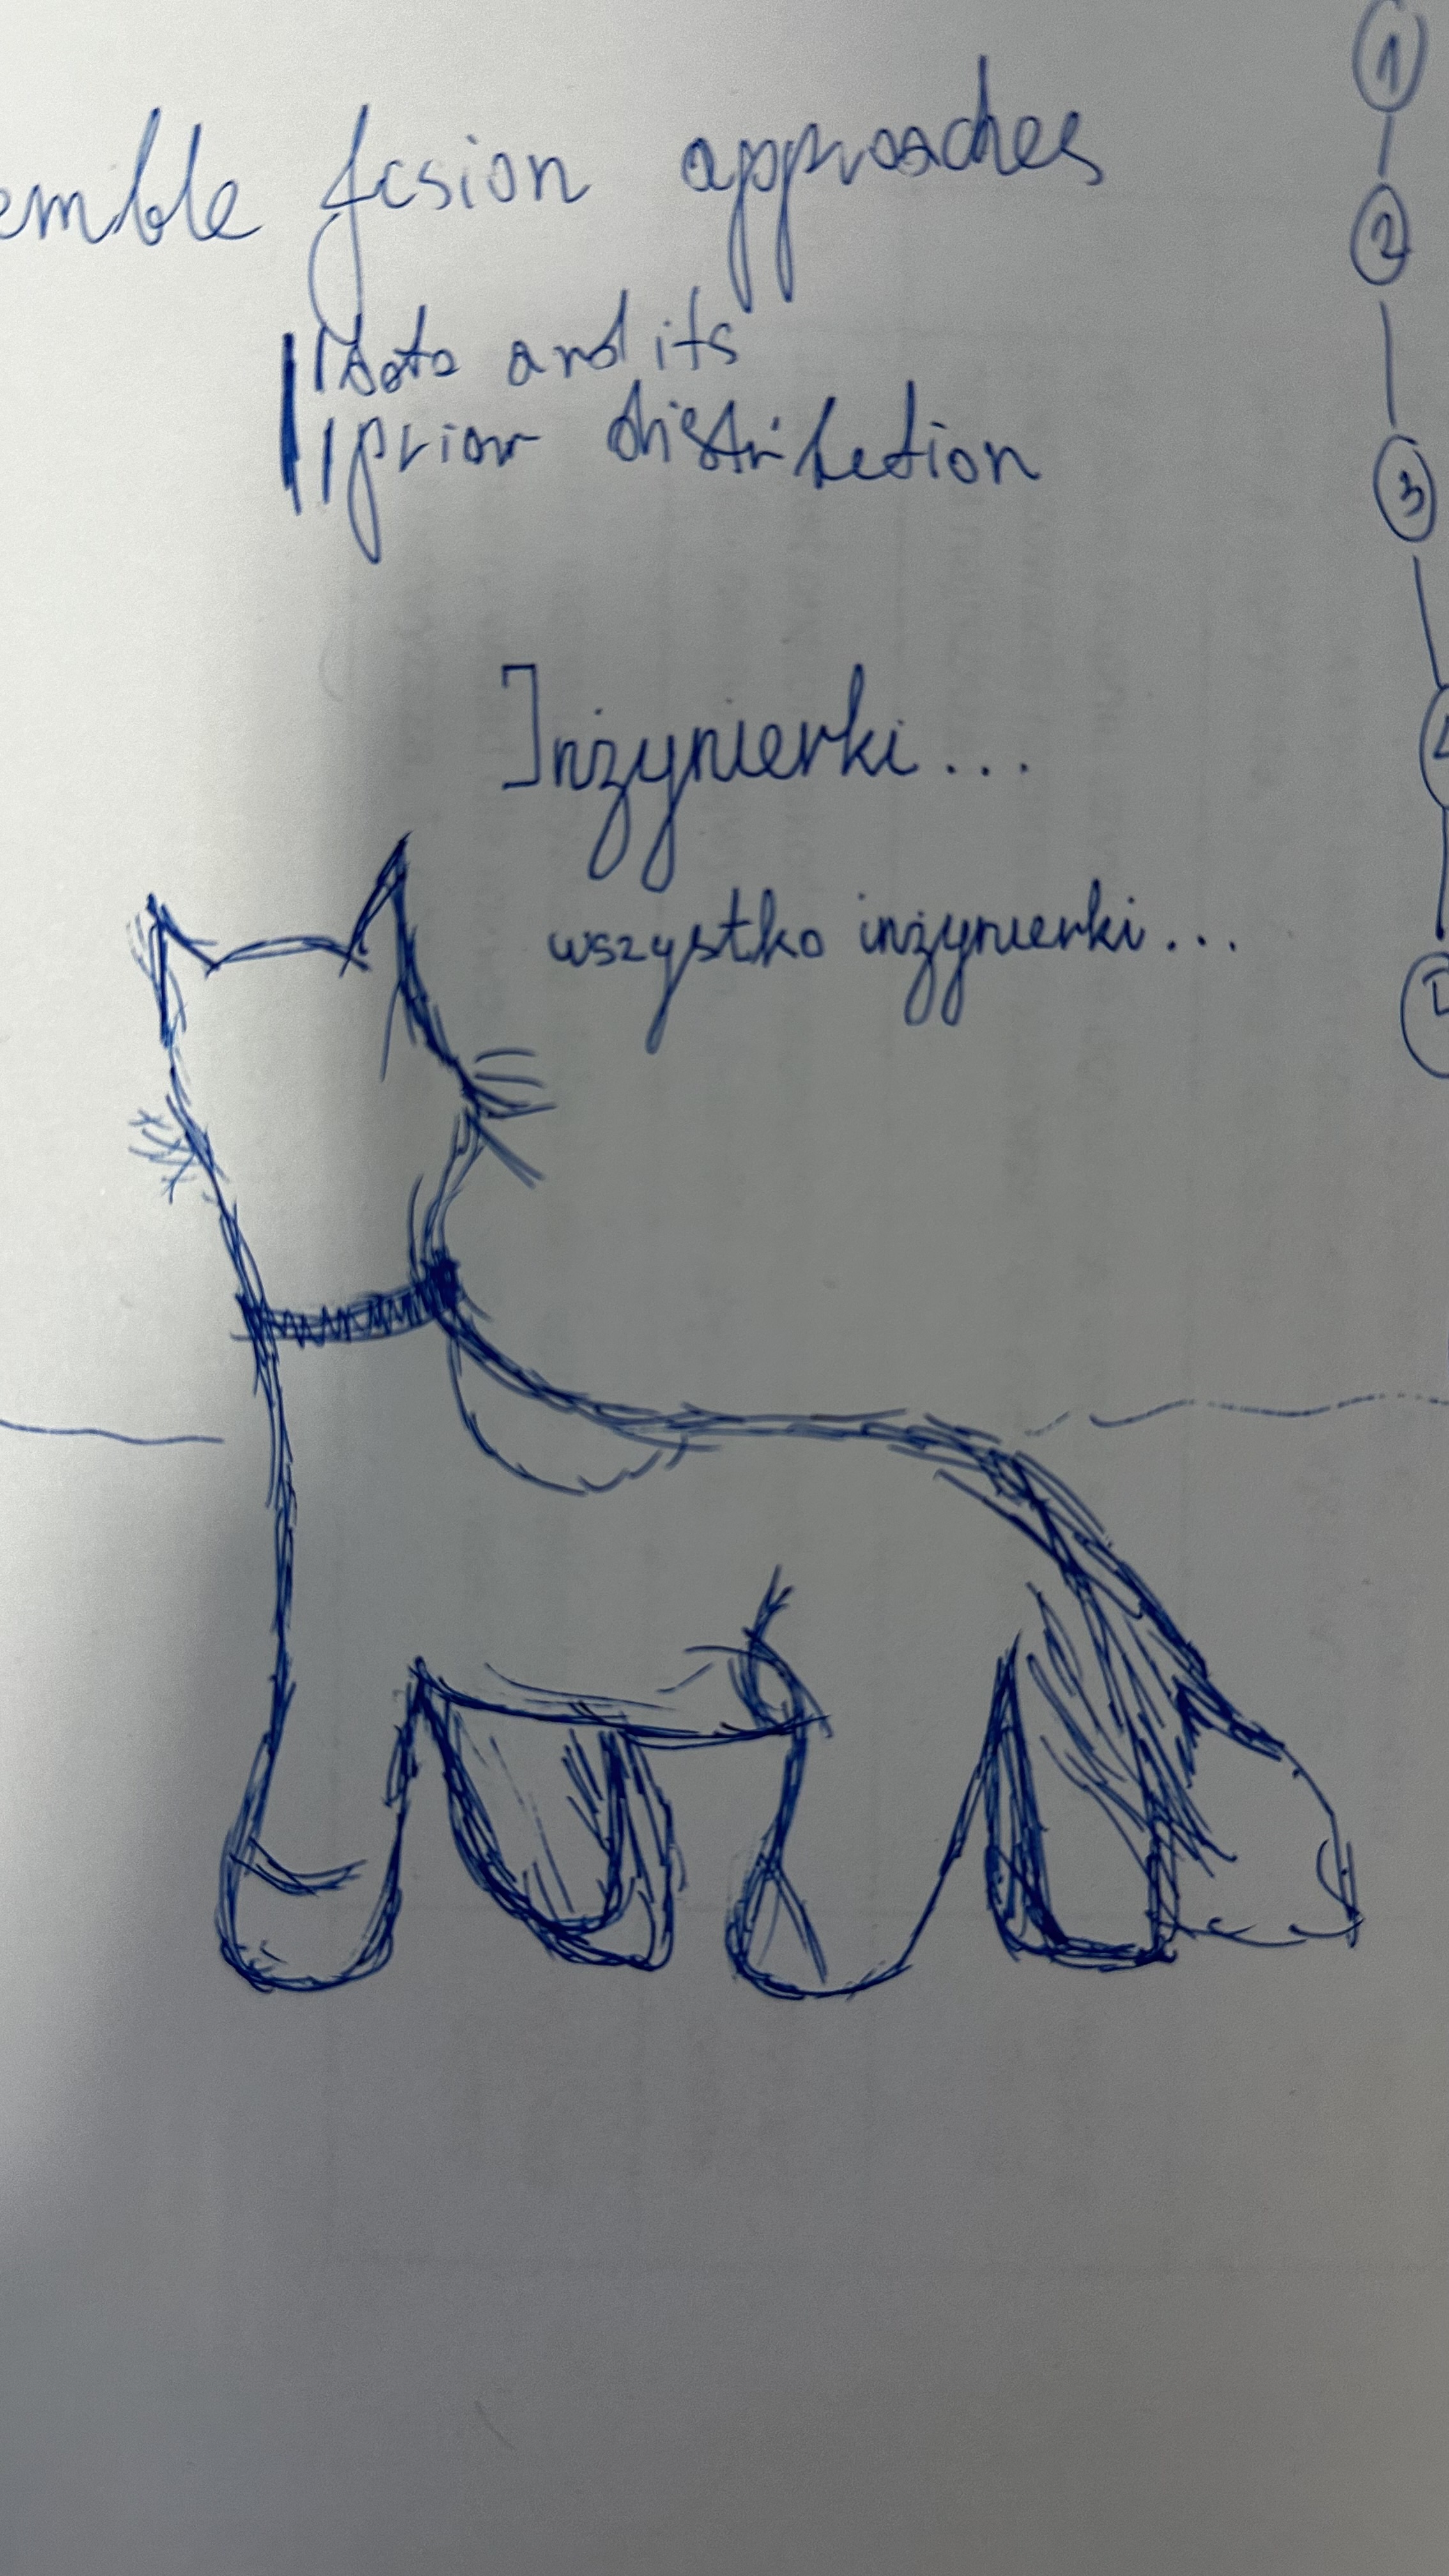 emble fusion approaches
Data and its
prior distribution
Inżynierki...
wszystko inżynierki...
1
2
3